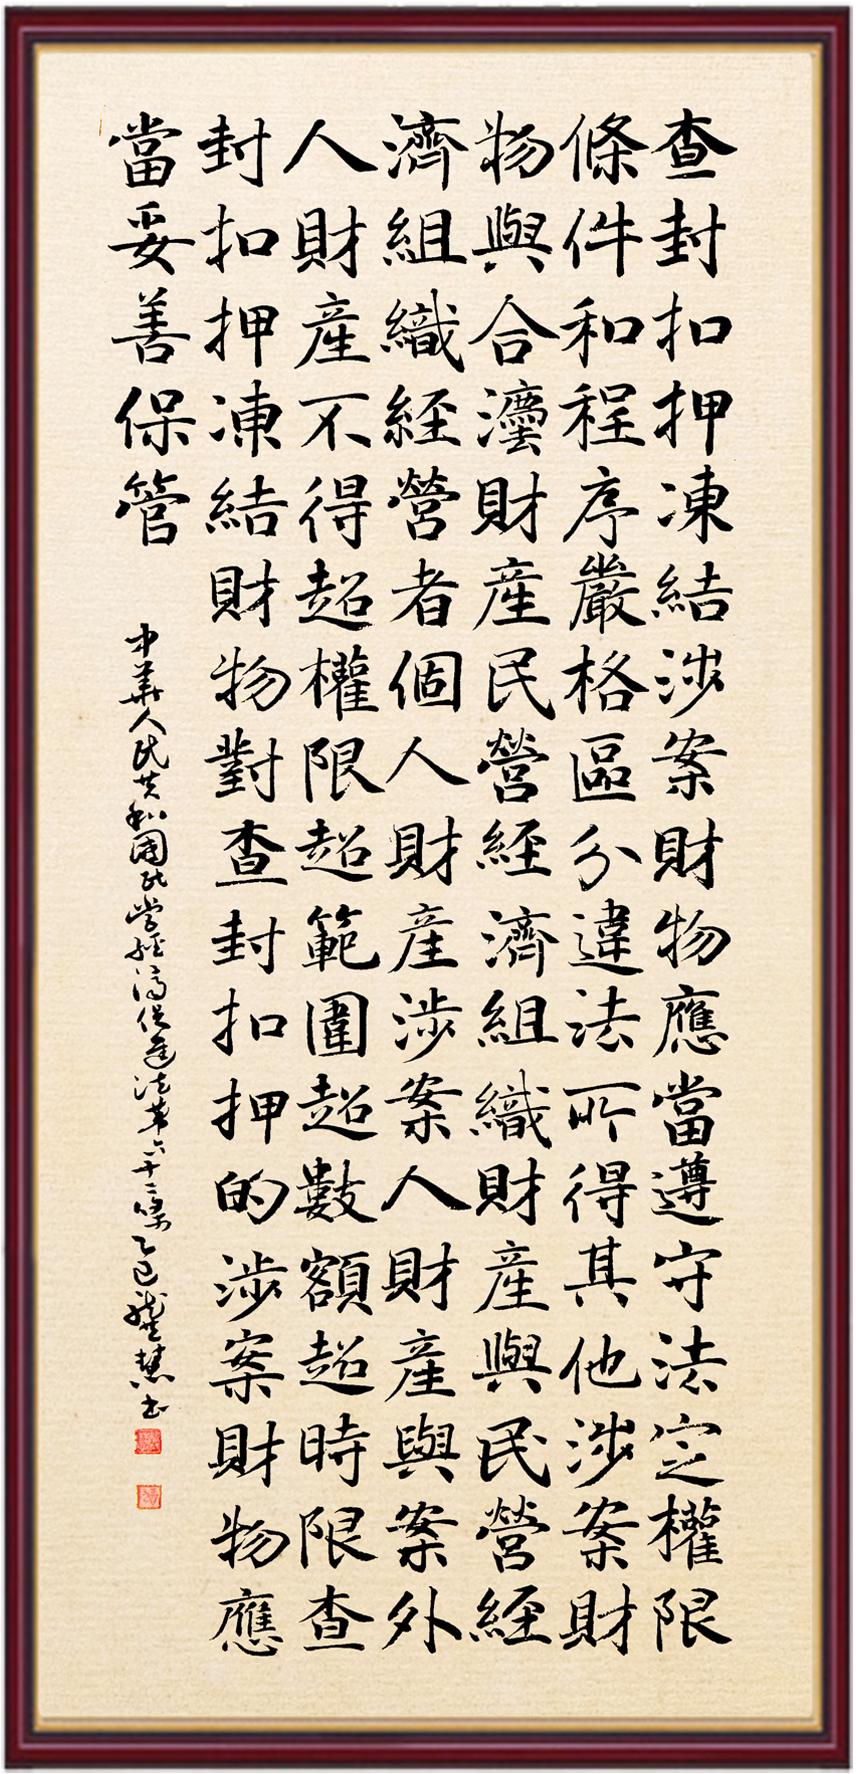 查封扣押凍結涉案財物應當遵守法定權限
條件和程序嚴格區分違法所得其他涉案財
物與合灋財產民營經濟組織財產與民營經
濟組織經營者個人財產涉案人財產與案外
人財產不得超權限超範圍超數額超時限查
封扣押凍結財物對查封扣押的涉案財物應
當妥善保管
中華人民共和國民營經濟促進法第六十二條乙巳慧书